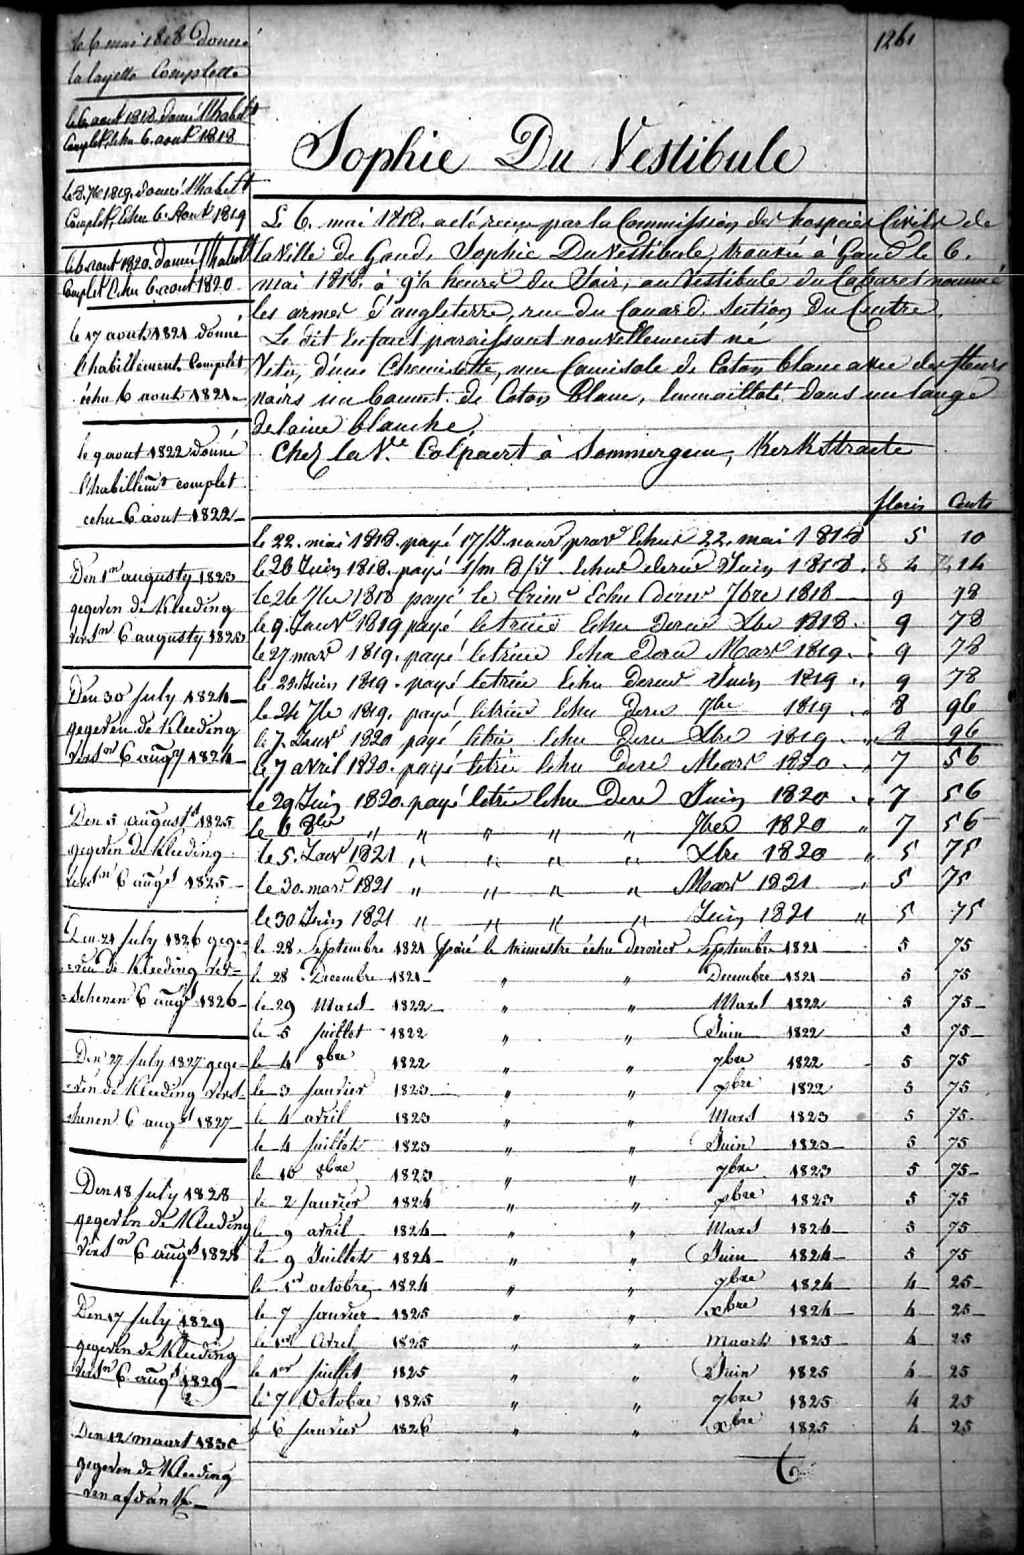 1261
Sophie Du Vestibule
Le 6. mai 1818. a été recue par la Commission des hospices Civils de
la Ville de Gand, Sophie Du Vestibule, trouvée à Gand le 6.
mai 1818. à 9½ heures du Soir, au Vestibule du Cabaret nommé
les armes d'angleterre, rue du Canard. Section du Centre.
Le dit Enfant paroissant nouvellement né
Vetu, d'une Chemisette, une Camisole de Coton blanc avec des fleurs
noirs un bonnet de Coton blanc, Emmaillotté dans un lange
de laine blanche.
Chez la Ve. Colpaert à Sommergem, Kerkstraete
florins Cents
le 22. mai 1818. payé 17/J. nour Echus 22. mai 1818 5 10
le 26 Juin 1818. payé 1/m 8/J Echus Juin 1818. 4 14
le 26 7bre 1818 payé le trim Echu dernr 7bre 1818 9 78
le 9 Janvr 1819 payé le trim Echu Xbre 1818. 9 78
le 27 mars 1819. payé le trim Echu Mars 1819. 9 78
le 22 Juin 1819. payé le trim Echu Juin 1819 9 78
le 24 7bre 1819. payé le trim Echu 7bre 1819 8 96
le 7 Janvr 1820 payé le trim Echu Xbre 1819 8 96
le 7 avril 1820. payé le trim Echu Mars 1820 7 56
le 29 Juin 1820. payé le trim Echu Juin 1820 7 56
le 6 8bre " " " " " 7bre 1820 " 7 56
le 5. Janvr 1821 " " " " Xbre 1820 " 5 75
le 30. mars 1821 " " " " Mars 1821 " 5 75
le 30 Juin 1821 " " " " Juin 1821 " 5 75
le 28 Septembre 1821 payé le trimestre échu dernier Septembre 1821 5 75
le 28 Decembre 1821 " " Decembre 1821 5 75
le 29 Mars 1822 " " Mars 1822 5 75
le 5 juillet 1822 " " Juin 1822 5 75
le 4 8bre 1822 " " 7bre 1822 5 75
le 3 janvier 1823 " " xbre 1822 5 75
le 4 avril 1823 " " Mars 1823 5 75
le 4 juillet 1823 " " Juin 1823 5 75
le 10 8bre 1823 " " 7bre 1823 5 75
le 2 janvier 1824 " " xbre 1823 5 75
le 9 avril 1824 " " Mars 1824 5 75
le 9 Juillet 1824 " " Juin 1824 5 75
le 1er octobre 1824 " " 7bre 1824 4 25
le 7 janvier 1825 " " xbre 1824 4 25
le 1er Avril 1825 " " Maart 1825 4 25
le 1er juillet 1825 " " Juin 1825 4 25
le 7 Octobre 1825 " " 7bre 1825 4 25
6 janvier 1826 " " Xbre 1825 4 25
le 6 mai 1818 donné
la layette Complette
le 6 aout 1818. donné l'habilt
Complet, échu 6. aout 1818
le 8. 7bre 1819. donné l'habilt
Complet, Echu 6. Aout 1819
le 6 aout 1820. donné l'habilt
Complet Echu 6. aout 1820
le 17 aout 1821 donné
l'habillement Complet
échu 6 aout 1821.
le 9 aout 1822 donné
l'habillemt complet
echu 6 aout 1822
Den 1n augusty 1823
gegeven de Kleeding
versn 6 augusty 1823
Den 30 July 1824
gegeven de Kleeding
versn 6 augy 1824
Den 5 augusts 1825
gegeven de Kleeding
versn 6 augt 1825
Den 21 July 1826 gege-
-ven de Kleeding ver-
-schenen 6 augt 1826
Den 27 July 1827 gege-
-ven de Kleeding vers-
-chenen 6 augt 1827
Den 18 July 1828
gegeven de Kleeding
versn 6 augt 1828
Den 17 July 1829
gegeven de Kleeding
versn 6 augt 1829
Den 12 maart 1830
gegeven de Kleeding